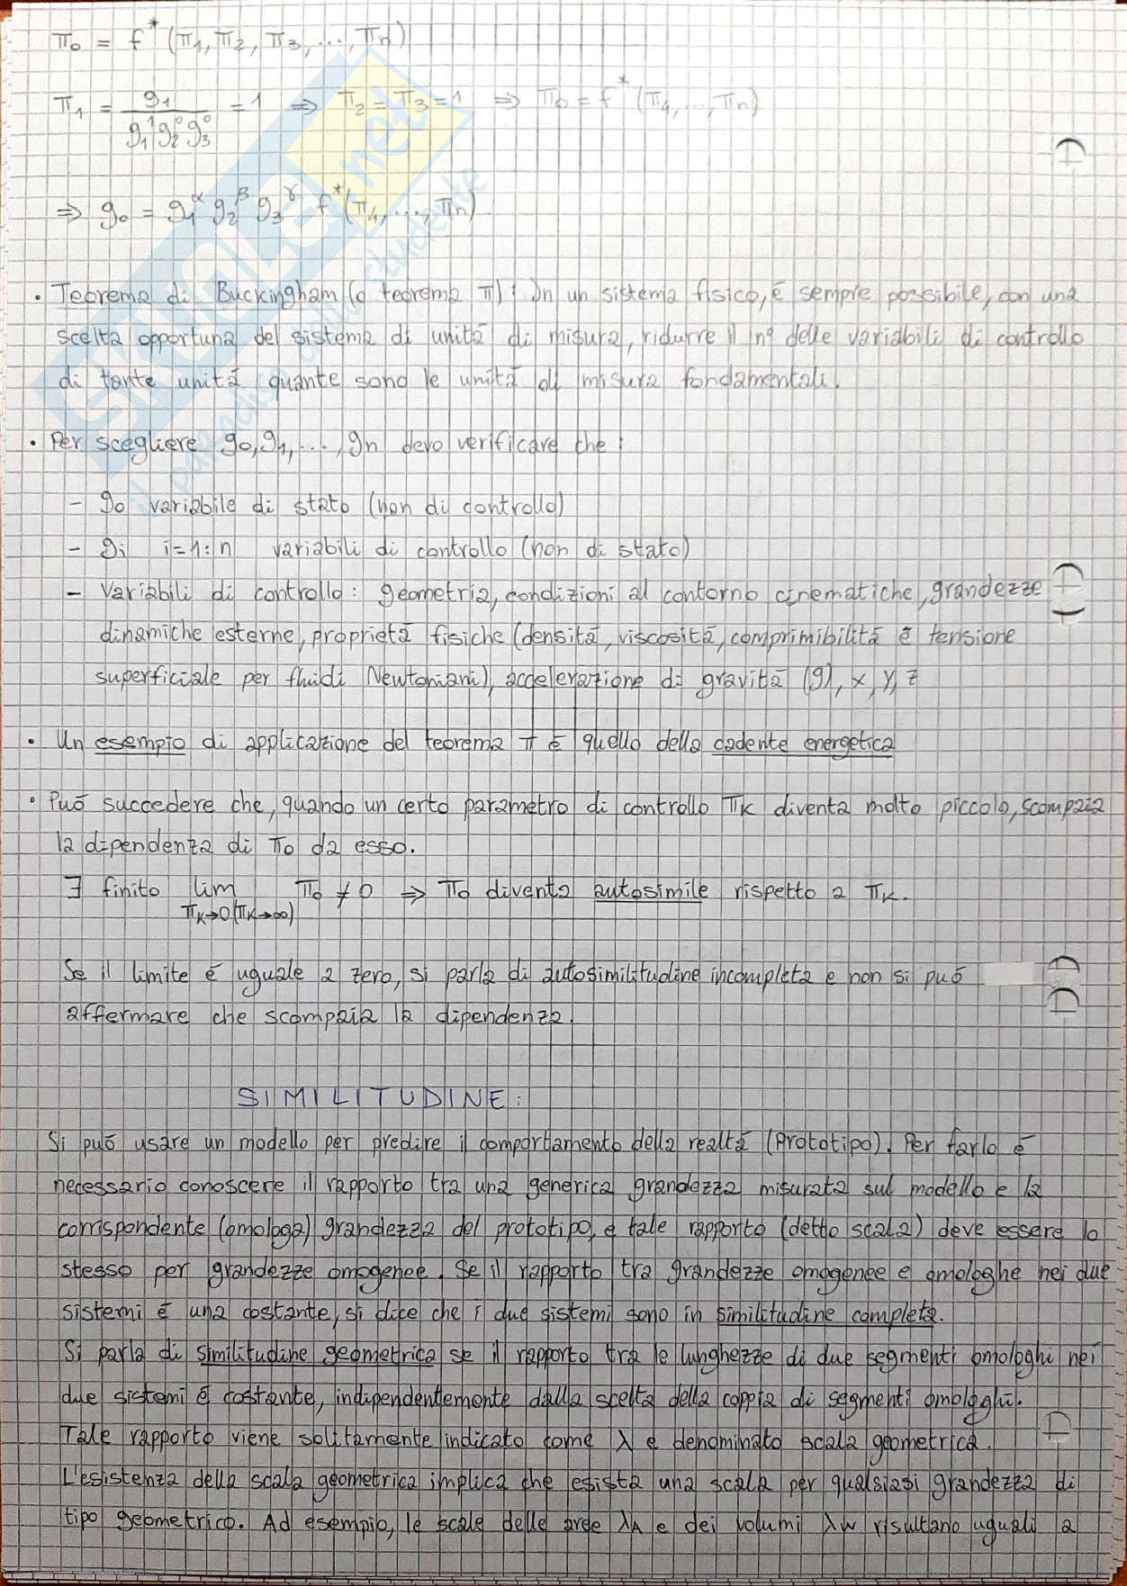 π₀ = f*(π₁, π₂, π₃, ..., πn)
π₁ = g₁ / g₁¹g₂⁰g₃⁰ = 1 ⇒ π₂ = π₃ = 1 ⇒ π₀ = f*(π₄, ..., πn)
⇒ g₀ = g₁^α g₂^β g₃^γ f*(π₄, ..., πn)
• Teorema di Buckingham (o teorema π): In un sistema fisico, è sempre possibile, con una
scelta opportuna del sistema di unità di misura, ridurre il n° delle variabili di controllo
di tante unità quante sono le unità di misura fondamentali.
• Per scegliere g₀, g₁, ..., gn devo verificare che:
- g₀ variabile di stato (non di controllo)
- gi i=1:n variabili di controllo (non di stato)
- Variabili di controllo: geometria, condizioni al contorno cinematiche, grandezze
dinamiche esterne, proprietà fisiche (densità, viscosità, comprimibilità e tensione
superficiale per fluidi Newtoniani), accelerazione di gravità (g), x, y, z
• Un esempio di applicazione del teorema π è quello della cadente energetica
• Può succedere che, quando un certo parametro di controllo πK diventa molto piccolo, scompaia
la dipendenza di π₀ da esso.
∃ finito lim π₀ ≠ 0 ⇒ π₀ diventa autosimile rispetto a πK.
πK→0 (πK→∞)
Se il limite è uguale a zero, si parla di autosimilitudine incompleta e non si può
affermare che scompaia la dipendenza.
SIMILITUDINE:
Si può usare un modello per predire il comportamento della realtà (Prototipo). Per farlo è
necessario conoscere il rapporto tra una generica grandezza misurata sul modello e la
corrispondente (omologa) grandezza del prototipo, e tale rapporto (detto scala) deve essere lo
stesso per grandezze omogenee. Se il rapporto tra grandezze omogenee e omologhe nei due
sistemi è una costante, si dice che i due sistemi sono in similitudine completa.
Si parla di similitudine geometrica se il rapporto tra le lunghezze di due segmenti omologhi nei
due sistemi è costante, indipendentemente dalla scelta della coppia di segmenti omologhi.
Tale rapporto viene solitamente indicato come λ e denominato scala geometrica.
L'esistenza della scala geometrica implica che esista una scala per qualsiasi grandezza di
tipo geometrico. Ad esempio, le scale delle aree λA e dei volumi λW risultano uguali a